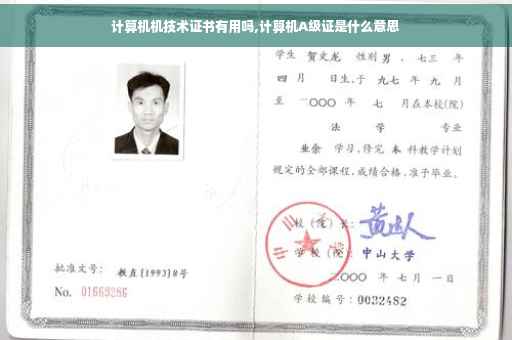 计算机机技术证书有用吗,计算机A级证是什么意思
学生 贺文龙 性别 男 、七三 年
四月 日生,于 九七 年 九 月
至 二〇〇〇 年 七 月在本校(院)
法 学 专业
业余 学习,修完 本 科教学计划
规定的全部课程,成绩合格,准予毕业。
校(院)长:
学校(院): 中山大学
二〇〇〇 年 七 月 一 日
学校编号: 0032482
批准文号: 教直[1993]8号
No. 01669286